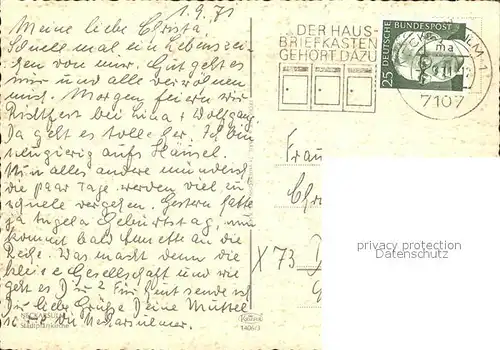 1.9.71
Meine liebe Christa,
Schnell mal ein Lebenszei-
chen von mir. Gut geht es
mir und alle verwöhnen
mich. Morgen feiern wir
Richtfest bei Lina + Wolfgang.
Da geht es toll her. Ich bin
neugierig aufs Häusel.
Nun alles andere mündlich
die paar Tage werden viel zu
schnelle vergehen. Gestern hatte
ja Angela Geburtstag, nun
kommt bald Annette an die
Reihe. Was macht denn die
kleine Gesellschaft und wie
geht es Dir? Für heut sende ich
Dir liebe Grüße Deine Mutter
NECKARSULM
Stadtpfarrkirche
DER HAUS-
BRIEFKASTEN
GEHÖRT DAZU
DEUTSCHE BUNDESPOST
25
7107
Frau
Chr
X 73 D
privacy protection
Datenschutz